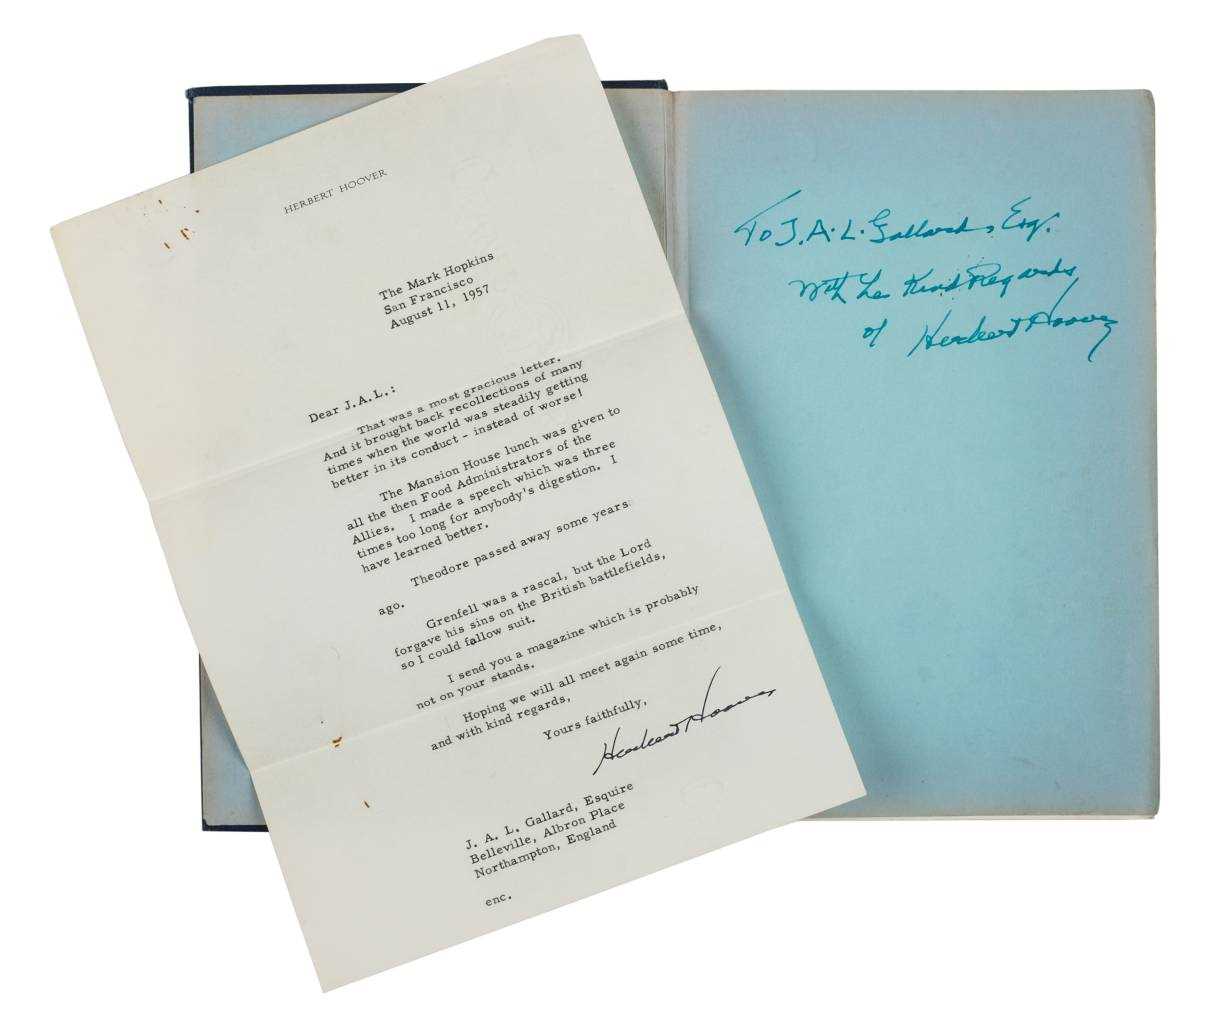 HERBERT HOOVER
The Mark Hopkins
San Francisco
August 11, 1957
Dear J.A.L.:
That was a most gracious letter.
And it brought back recollections of many
times when the world was steadily getting
better in its conduct - instead of worse!
The Mansion House lunch was given to
all the then Food Administrators of the
Allies. I made a speech which was three
times too long for anybody's digestion. I
have learned better.
Theodore passed away some years
ago.
Grenfell was a rascal, but the Lord
forgave his sins on the British battlefields,
so I could fallow suit.
I send you a magazine which is probably
not on your stands.
Hoping we will all meet again some time,
and with kind regards,
Yours faithfully,
Herbert Hoover
J. A. L. Gallard, Esquire
Belleville, Albron Place
Northampton, England
enc.
To J.A.L. Gallard, Esq.
With The Kind Regards
of Herbert Hoover